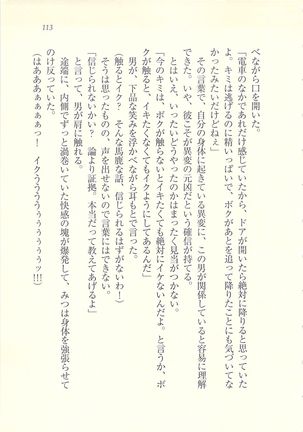 113
べながら口を開いた。
「電車のなかであれだけ感じていたから、ドアが開いたら絶対に降りると思っていた
よ。キミは逃げるのに精いっぱいで、ボクがあとを追って降りたことにも気づいてな
かったみたいだけどねぇ」
その言葉で、自分の身体に起きている異変に、この男が関係していると容易に理解
できた。いや、彼こそが異変の元凶だという確信が持てる。
とはいえ、いったいどうやったのかはまったく見当がつかない。
「今のキミは、ボクが触らないとイキたくても絶対にイケないんだよ。と言うか、ボ
クが触ると、イキたくなくてもイクようにしてあるんだ」
男が、下品な笑みを浮かべながら耳もとで言った。
(触るとイク？　そんな馬鹿な話、信じられるはずがないわ！)
そうは思ったものの、声を出せないので言葉にはできない。
「信じられないかい？　論より証拠。本当だって教えてあげるよ」
と言って、男が肩に触れる。
途端に、内側でずっと渦巻いていた快感の塊が爆発して、みつは身体を強張らせて
のけ反っていた。
(はあああぁぁぁぁっ！　イクぅぅぅぅぅぅぅぅぅぅッ!!!)